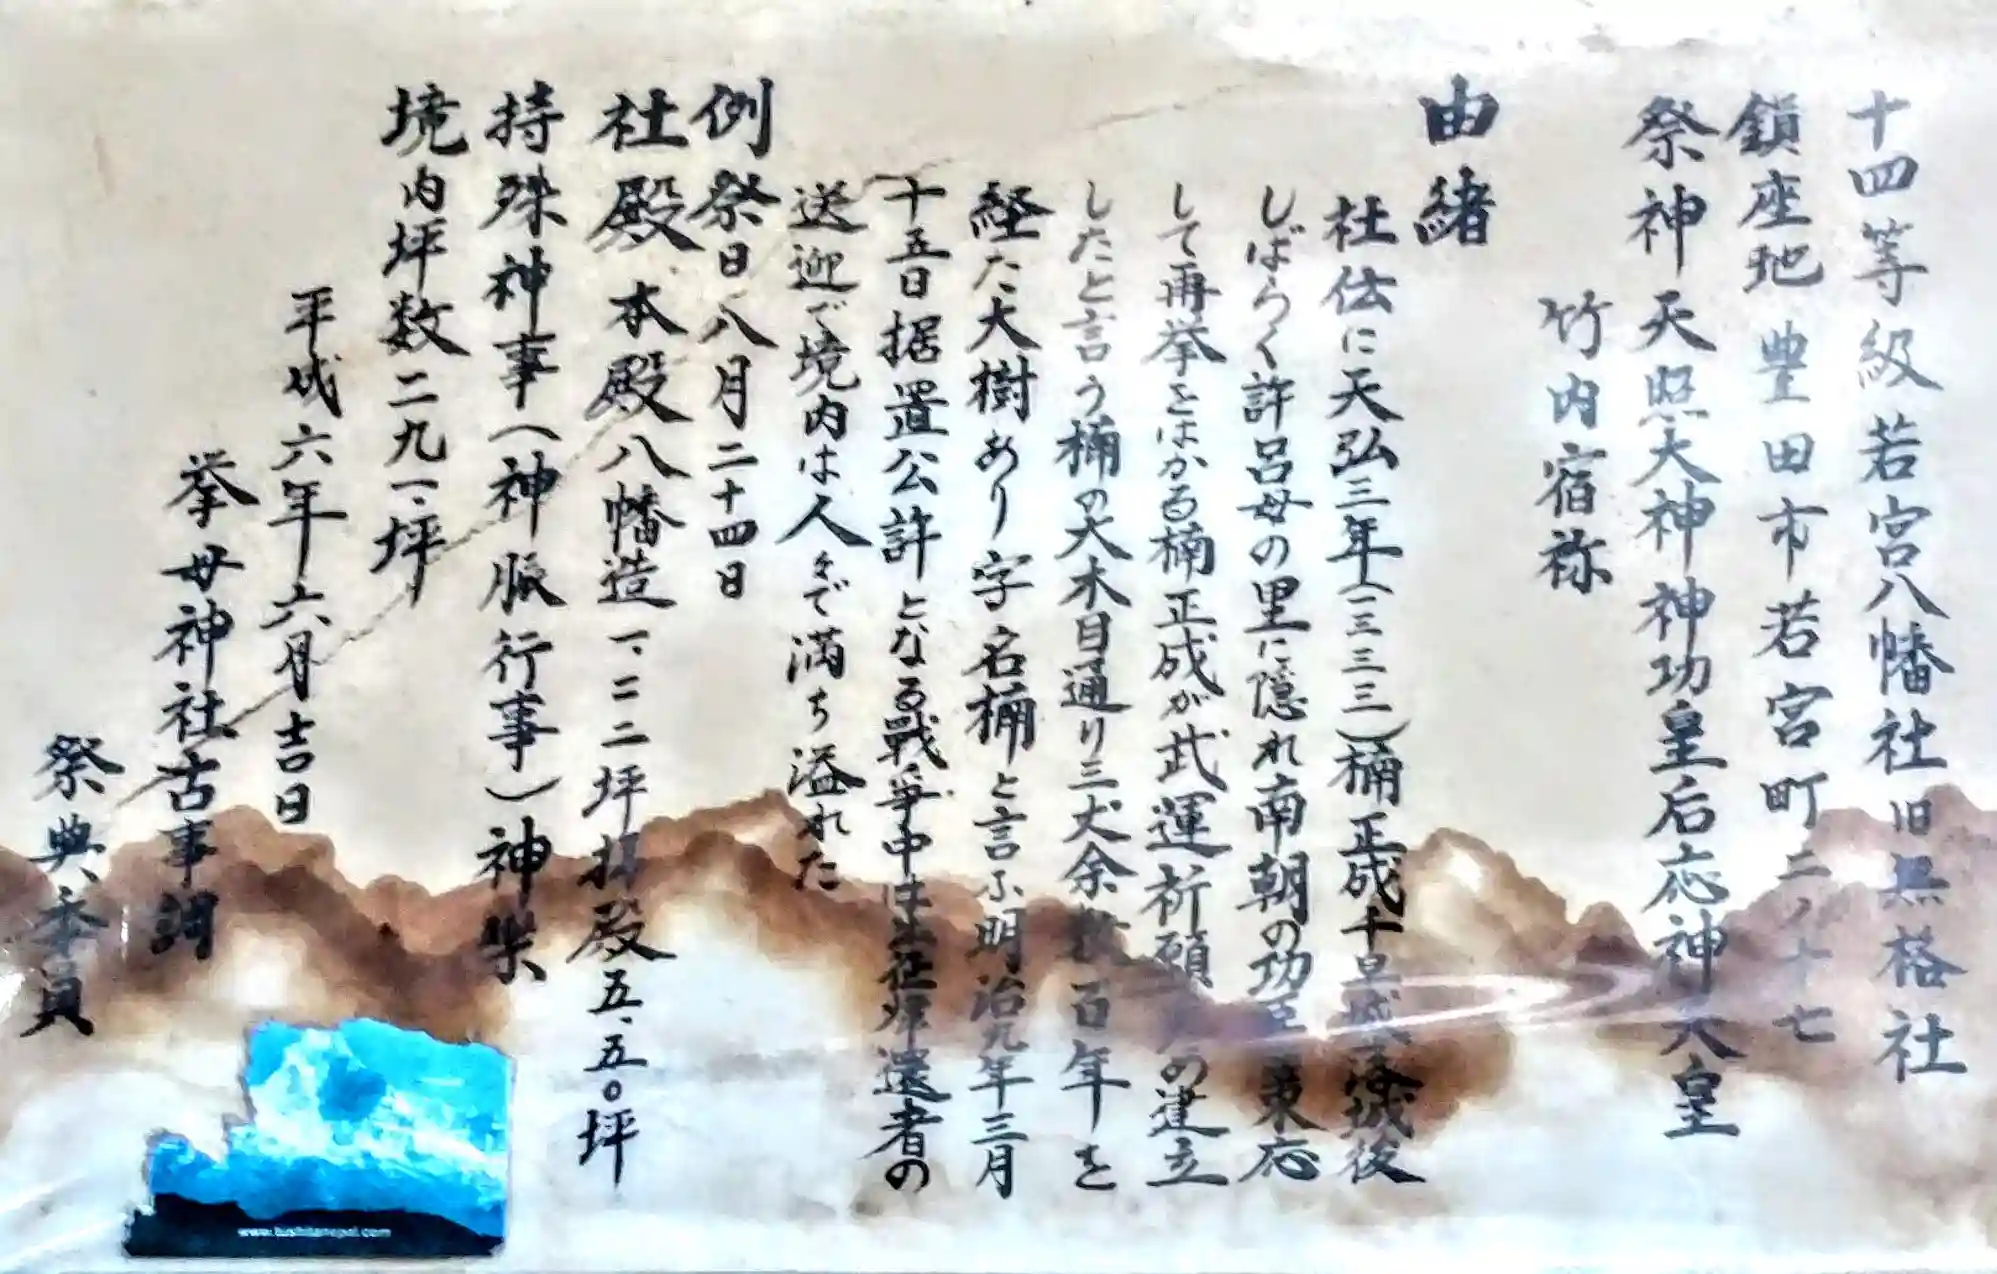 十四等級若宮八幡社旧無格社
鎮座地 豊田市若宮町二ノ十七
祭神 天照大神神功皇后応神天皇
竹内宿祢
由緒
社伝に天弘三年(一三三三)楠正成千早城落城後
しばらく許呂母の里に隠れ南朝の功臣東応
して再挙をはかる楠正成が武運祈願の建立
したと言う楠の大木目通り三丈余数百年を
経た大樹あり字名楠と言ふ明治九年三月
十五日据置公許となる戦争中は出征帰還者の
送迎で境内は人々で満ち溢れた
例祭日八月二十四日
社殿 本殿八幡造一、二二坪拝殿五、五〇坪
特殊神事(神服行事)神楽
境内坪数二九一、坪
平成六年六月吉日
挙母神社古事調
祭典委員
www.tushitanepal.com